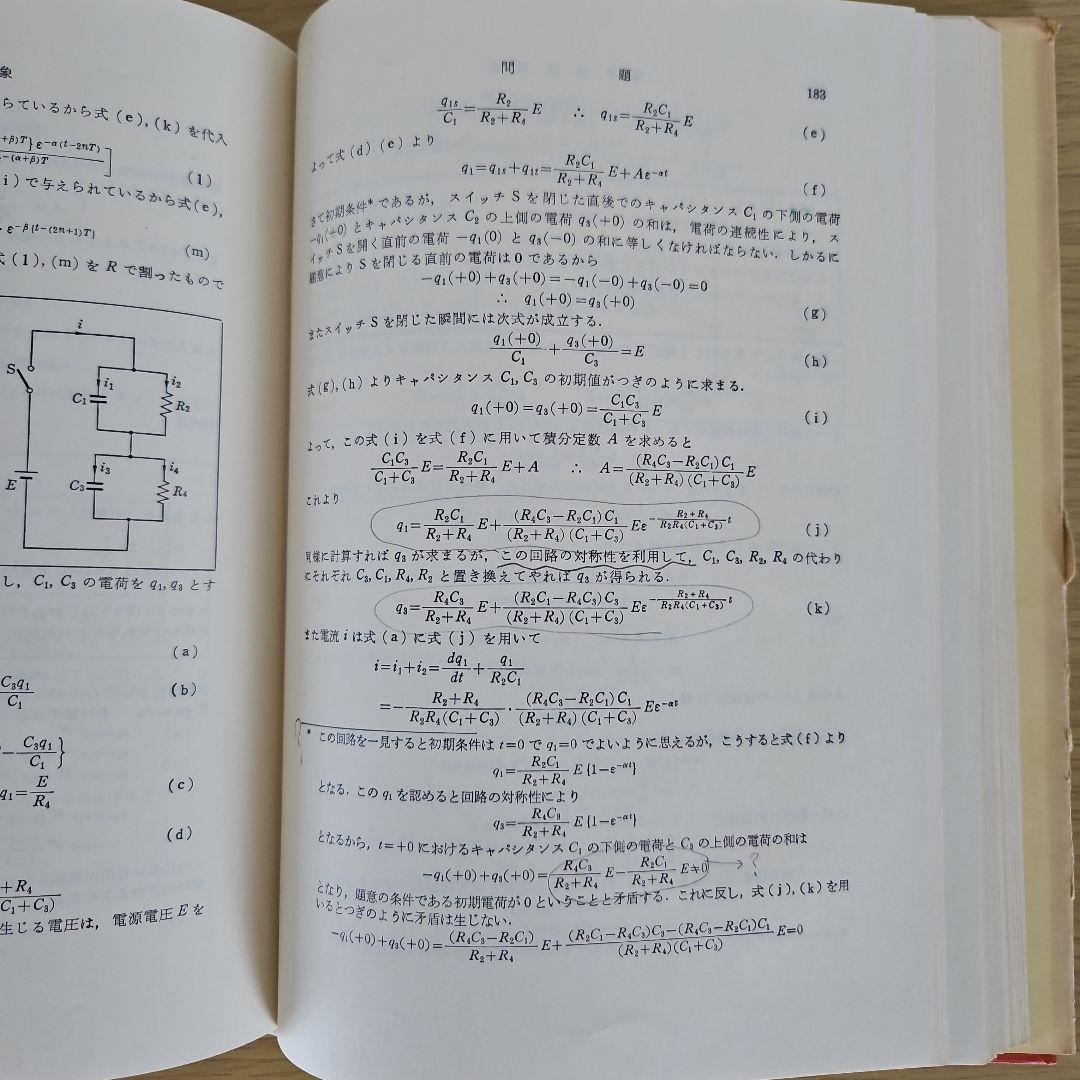 象
らているから式 (e), (k) を代入
+β)T} ε^{-α(t-2nT)}
-(α+β)T ]
(1)
i) で与えられているから式(e),
· ε^{-β{t-(2n+1)T}}
(m)
式 (1), (m) を R で割ったもので
i
S
i₁
i₂
C₁
R₂
i₃
i₄
E
C₃
R₄
し, C₁, C₃ の電荷を q₁, q₃ とす
(a)
C₃q₁/C₁ (b)
- C₃q₁/C₁ }
q₁ = E/R₄ (c)
(d)
+ R₄
(C₁+C₃)
生じる電圧は, 電源電圧 E を
問 題
183
q₁ₛ/C₁ = R₂/(R₂+R₄) E ∴ q₁ₛ = R₂C₁/(R₂+R₄) E (e)
よって式 (d). (e) より
q₁ = q₁ₛ + q₁ₜ = R₂C₁/(R₂+R₄) E + Aε^{-αt} (f)
さて初期条件* であるが, スイッチ S を閉じた直後でのキャパシタンス C₁ の下側の電荷
-q₁(+0) とキャパシタンス C₂ の上側の電荷 q₃(+0) の和は, 電荷の連続性により, ス
イッチ S を開く直前の電荷 -q₁(0) と q₃(-0) の和に等しくなければならない. しかるに
題意により S を閉じる直前の電荷は 0 であるから
-q₁(+0)+q₃(+0)=-q₁(-0)+q₃(-0)=0
∴ q₁(+0)=q₃(+0) (g)
またスイッチ S を閉じた瞬間には次式が成立する.
q₁(+0)/C₁ + q₃(+0)/C₃ = E (h)
式(g), (h) よりキャパシタンス C₁, C₃ の初期値がつぎのように求まる.
q₁(+0)=q₃(+0)= C₁C₃/(C₁+C₃) E (i)
よって, この式 (i) を式 (f) に用いて積分定数 A を求めると
C₁C₃/(C₁+C₃) E = R₂C₁/(R₂+R₄) E + A ∴ A = (R₄C₃-R₂C₁)C₁/(R₂+R₄)(C₁+C₃) E
これより
q₁ = R₂C₁/(R₂+R₄) E + (R₄C₃-R₂C₁)C₁/(R₂+R₄)(C₁+C₃) Eε^{-(R₂+R₄)/(R₂R₄(C₁+C₃)) t} (j)
同様に計算すれば q₃ が求まるが, この回路の対称性を利用して, C₁, C₃, R₂, R₄ の代わり
にそれぞれ C₃, C₁, R₄, R₂ と置き換えてやれば q₃ が得られる.
q₃ = R₄C₃/(R₂+R₄) E + (R₂C₁-R₄C₃)C₃/(R₂+R₄)(C₁+C₃) Eε^{-(R₂+R₄)/(R₂R₄(C₁+C₃)) t} (k)
また電流 i は式 (a) に式 (j) を用いて
i = i₁+i₂ = dq₁/dt + q₁/R₂C₁
= - (R₂+R₄)/R₂R₄(C₁+C₃) · (R₄C₃-R₂C₁)C₁/(R₂+R₄)(C₁+C₃) Eε^{-αt}
?
* この回路を一見すると初期条件は t=0 で q₁=0 でよいように思えるが, こうすると式(f)より
q₁ = R₂C₁/(R₂+R₄) E{1-ε^{-αt}}
となる. この q₁ を認めると回路の対称性により
q₃ = R₄C₃/(R₂+R₄) E{1-ε^{-αt}}
となるから, t=+0 におけるキャパシタンス C₁ の下側の電荷と C₃ の上側の電荷の和は
-q₁(+0)+q₃(+0)= R₄C₃/(R₂+R₄) E - R₂C₁/(R₂+R₄) E≠0 → ?
となり, 題意の条件である初期電荷が 0 ということと矛盾する. これに反し, 式(j), (k) を用
いるとつぎのように矛盾は生じない.
-q₁(+0)+q₃(+0)= (R₄C₃-R₂C₁)/(R₂+R₄) E + (R₂C₁-R₄C₃)C₃-(R₄C₃-R₂C₁)C₁/(R₂+R₄)(C₁+C₃) E=0